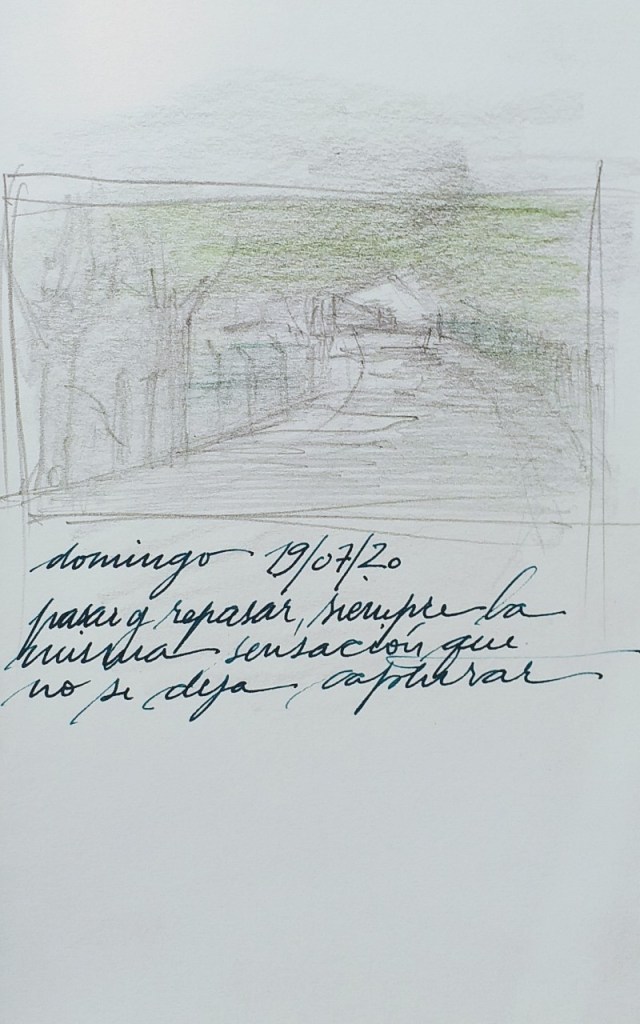 domingo 19/07/20
pasar y repasar, siempre la
misma sensación que
no se deja capturar